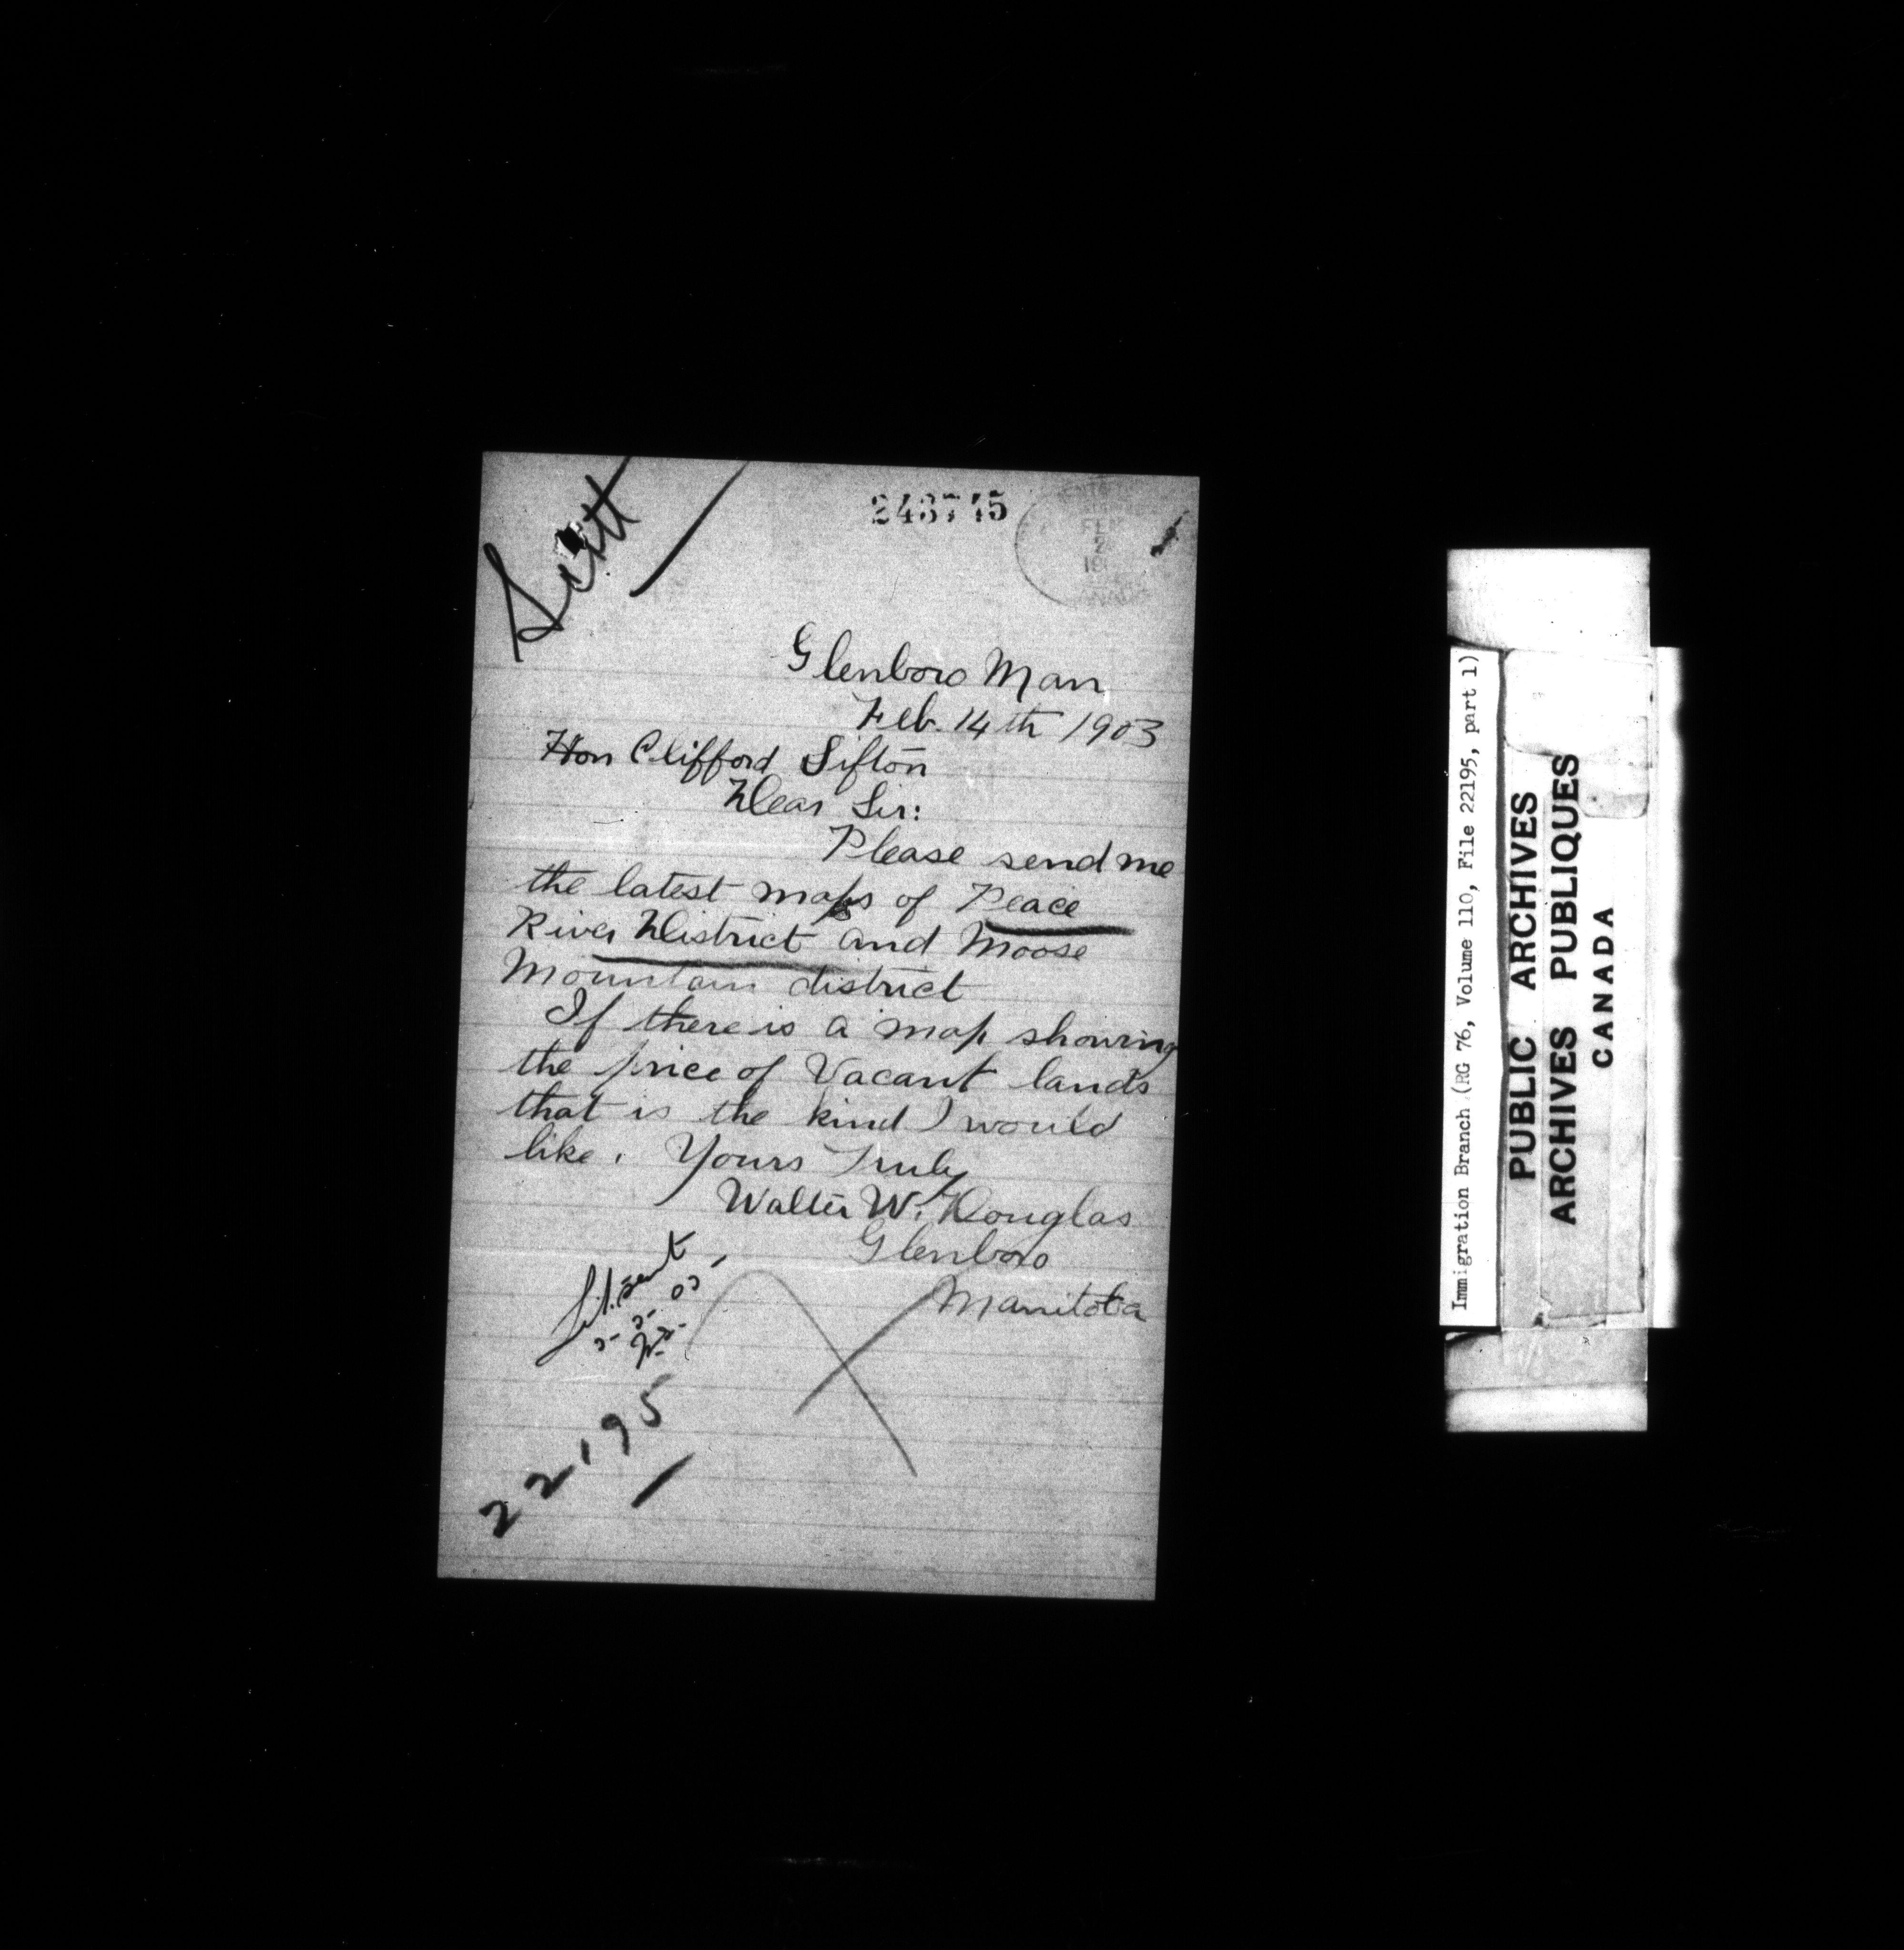 243745
FEB
2
Glenboro Man
Feb. 14th 1903
Hon Clifford Sifton
Dear Sir:
Please send me
the latest maps of Peace
River District and Moose
Mountain district
If there is a map showing
the price of Vacant lands
that is the kind I would
like. Yours Truly
Walter W. Douglas
Glenboro
Manitoba
Lit. sent
3-3-03
22195
Immigration Branch (RG 76, Volume 110, File 22195, part 1)
PUBLIC ARCHIVES
ARCHIVES PUBLIQUES
CANADA